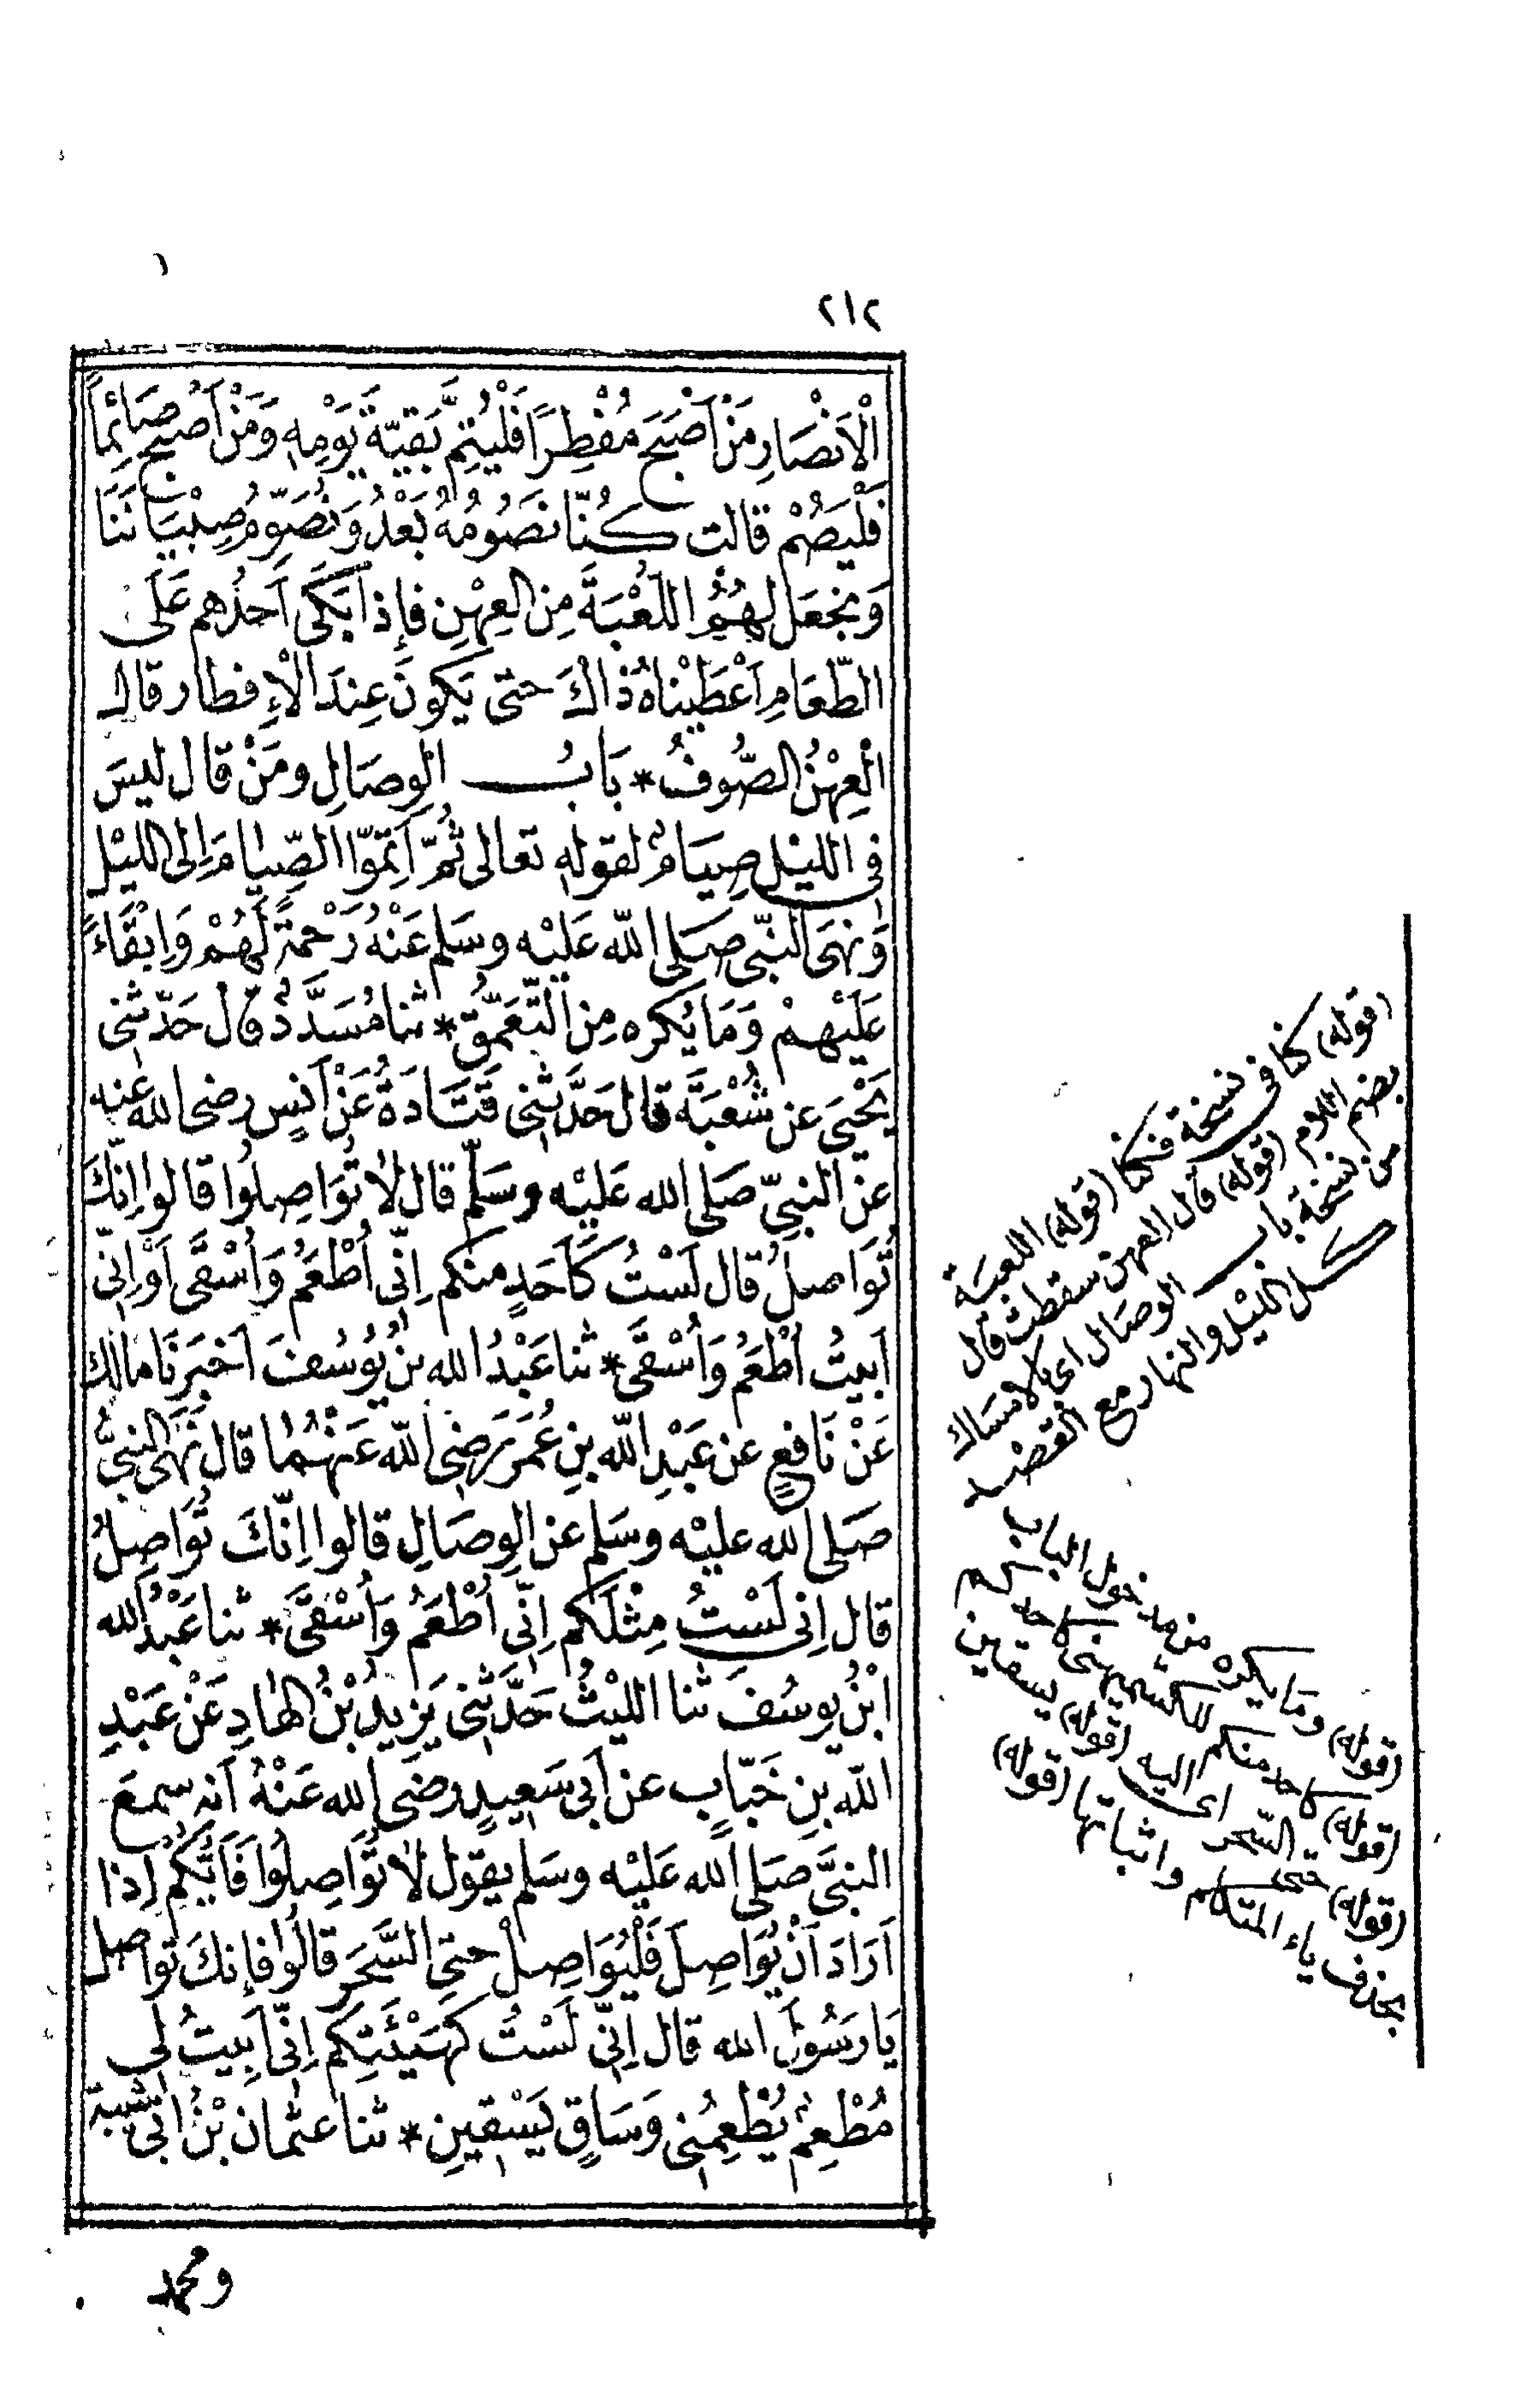 ٢١٢
الْاَنْصَارِ مَنْ اَصْبَحَ مُفْطِرًا فَلْيُتِمَّ بَقِيَّةَ يَوْمِهِ وَمَنْ اَصْبَحَ صَائِمًا
فَلْيَصُمْ قالت كُنَّا نَصُومُهُ بَعْدُ وَنُصَوِّمُ صِبْيَانَنَا
وَنَجْعَل لهُمُ اللُّعْبَةَ مِنَ العِهْنِ فإِذا بَكَى اَحَدُهم عَلَى
الطَّعَامِ اَعْطَيْنَاهُ ذَاكَ حتى يَكونَ عِندَ الْاِفطار قال
الْعِهْنُ الصُّوفُ * بَابُ الوِصَالِ ومَنْ قال ليسَ
فى الليْلِ صِيَامٌ لقوله تعالى ثُمَّ اَتِمُّوا الصِّيَامَ اِلى الليْل
وَنَهَى النَّبِى صَلى الله عَلَيْه وسَلم عَنْهُ رَحْمَةً لَهُمْ وَاِبْقَاءً
عَلَيْهِمْ وَمَا يُكره مِنَ التَّعَمُّقِ * ثنا مُسَدَّدٌ قال حَدَّثنى
يَحْيَى عن شُعْبَةَ قال حَدَّثنى قَتَادَةُ عَنْ اَنَسٍ رضى الله عنه
عَنِ النبِىِّ صَلى الله عَلَيْه وسَلَّم قال لا تُوَاصِلوا قالوا اِنَّكَ
تُوَاصِلُ قال لَسْتُ كَاَحَدٍ منكم اِنِّى اُطْعَمُ وَاُسْقَى اَوْ اِنِّى
اَبِيتُ اُطْعَمُ وَاُسْقَى * ثنا عَبْدُ الله بنُ يُوسُفَ اَخبَرَنَا مالك
عَنْ نَافِعٍ عن عَبْدِ الله بنِ عُمَرَ رَضِى الله عَنْهُمَا قال نَهَى النبِىُّ
صَلى الله عليْه وسَلم عن الوِصَالِ قالوا اِنَّكَ تُوَاصِلُ
قال اِنى لَسْتُ مِثْلَكم اِنِّى اُطْعَمُ وَاُسْقَى * ثنا عَبْدُ الله
ابْنُ يوسُفَ ثنا الليْثُ حَدَّثنى يَزِيدُ بْنُ الهَادِ عَنْ عَبْدِ
الله بنِ خَبَّابٍ عن اَبى سَعِيدٍ رضى الله عَنْهُ اَنه سمعَ
النبِىَّ صَلى الله عَلَيْه وسَلم يقول لا تُوَاصِلُوا فَاَيُّكُمْ اِذا
اَرَادَ اَنْ يُوَاصِلَ فَلْيُوَاصِلْ حتى السَّحَرِ قالُوا فإنكَ تواصل
يَا رَسُولَ الله قال اِنِّى لَسْتُ كَهَيْئَتِكم اِنِّى اَبِيتُ لِى
مُطْعِمٌ يُطْعِمُنِى وَسَاقٍ يَسْقِينِ * ثنا عثمان بْنُ ابى شيبة
ومحمد
(قوله) كنا فى نسخة فكنا (قوله) اللعبة
بضم اللام (قوله) قال العهن سقطت قال
من نسخة باب الوصال اى الامساك
كل الليل والنهار مع القصد
(قوله) وما يكره من مدخول الباب
(قوله) كاحد منكم للكشميهنى كاحدكم
(قوله) حتى السحر اى اليه (قوله) يسقين
بحذف ياء المتكلم واثباتها (قوله)